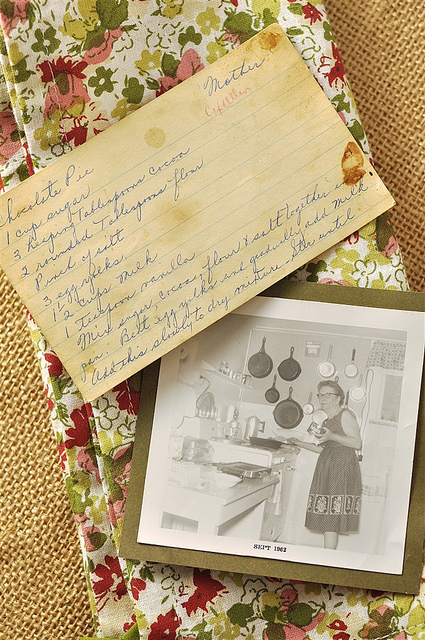 Mother
Chocolate Pie
1 cup sugar
3 heaping Tablespoons cocoa
2 rounded Tablespoons flour
Pinch of salt
3 egg yolks
1 1/2 cups milk
1 teaspoon vanilla
Mix sugar, cocoa, flour & salt together in
pan. Beat egg yolks and gradually add milk
Add this slowly to dry mixture. Stir until
SEPT 1962